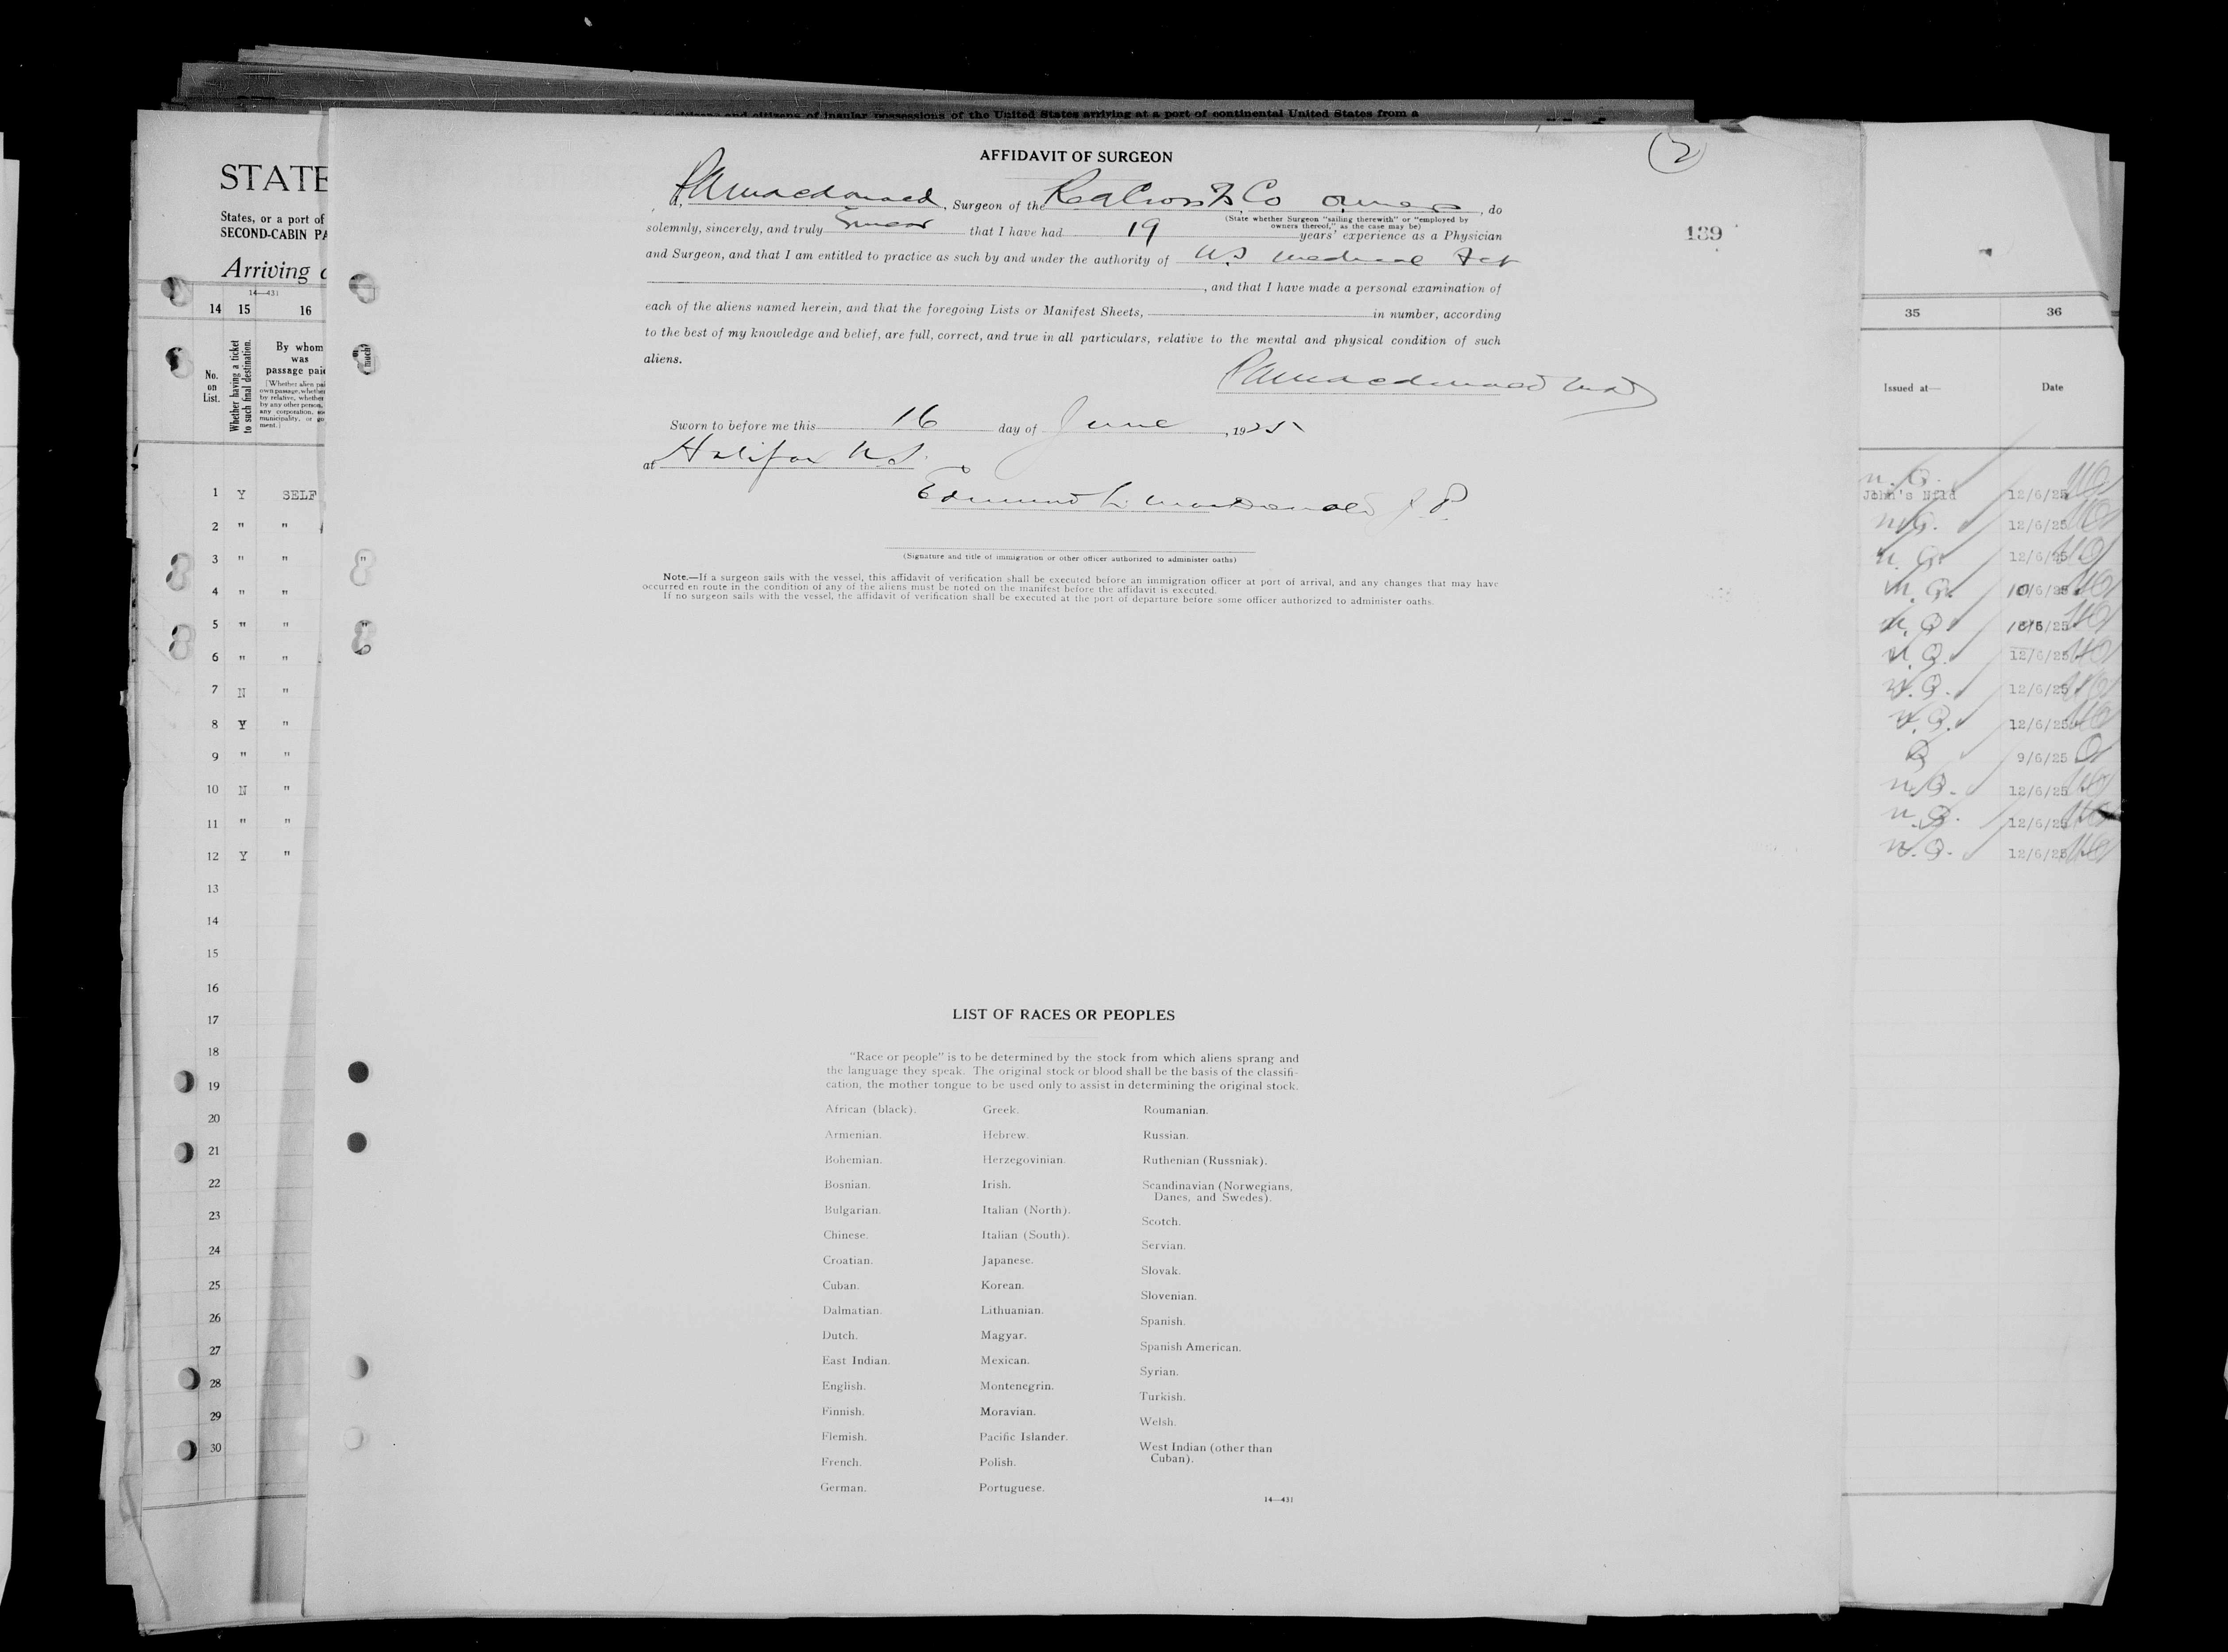 citizens and citizens of insular possessions of the United States arriving at a port of continental United States from a
STATE
States, or a port of
SECOND-CABIN PA
Arriving
14—431
14 15 16
No. on List.
Whether having a ticket to such final destination.
By whom was passage paid
1 Y SELF
2 " "
3 " "
4 " "
5 " "
6 " "
7 N "
8 Y "
9 " "
10 N "
11 " "
12 Y "
13
14
15
16
17
18
19
20
21
22
23
24
25
26
27
28
29
30
(2)
AFFIDAVIT OF SURGEON
189
I, Macdonald, Surgeon of the Red Cross Co owners, do
(State whether Surgeon "sailing therewith" or "employed by
owners thereof," as the case may be)
solemnly, sincerely, and truly Swear that I have had 19 years' experience as a Physician
and Surgeon, and that I am entitled to practice as such by and under the authority of N.S medical Act
, and that I have made a personal examination of
each of the aliens named herein, and that the foregoing Lists or Manifest Sheets, in number, according
to the best of my knowledge and belief, are full, correct, and true in all particulars, relative to the mental and physical condition of such
aliens.
Macdonald M.D
Sworn to before me this 16 day of June, 1925
at Halifax N.S.
Edmund L. MacDonald J P.
(Signature and title of immigration or other officer authorized to administer oaths)
Note.—If a surgeon sails with the vessel, this affidavit of verification shall be executed before an immigration officer at port of arrival, and any changes that may have
occurred en route in the condition of any of the aliens must be noted on the manifest before the affidavit is executed.
If no surgeon sails with the vessel, the affidavit of verification shall be executed at the port of departure before some officer authorized to administer oaths.
LIST OF RACES OR PEOPLES
"Race or people" is to be determined by the stock from which aliens sprang and
the language they speak. The original stock or blood shall be the basis of the classifi-
cation, the mother tongue to be used only to assist in determining the original stock.
African (black).
Armenian.
Bohemian.
Bosnian.
Bulgarian.
Chinese.
Croatian.
Cuban.
Dalmatian.
Dutch.
East Indian.
English.
Finnish.
Flemish.
French.
German.
Greek.
Hebrew.
Herzegovinian.
Irish.
Italian (North).
Italian (South).
Japanese.
Korean.
Lithuanian.
Magyar.
Mexican.
Montenegrin.
Moravian.
Pacific Islander.
Polish.
Portuguese.
Roumanian.
Russian.
Ruthenian (Russniak).
Scandinavian (Norwegians,
Danes, and Swedes).
Scotch.
Servian.
Slovak.
Slovenian.
Spanish.
Spanish American.
Syrian.
Turkish.
Welsh.
West Indian (other than
Cuban).
14—431
35 36
Issued at— Date
John's Nfld 12/6/25
12/6/25
12/6/25
10/6/25
10/6/25
12/6/25
12/6/25
12/6/25
9/6/25
12/6/25
12/6/25
12/6/25